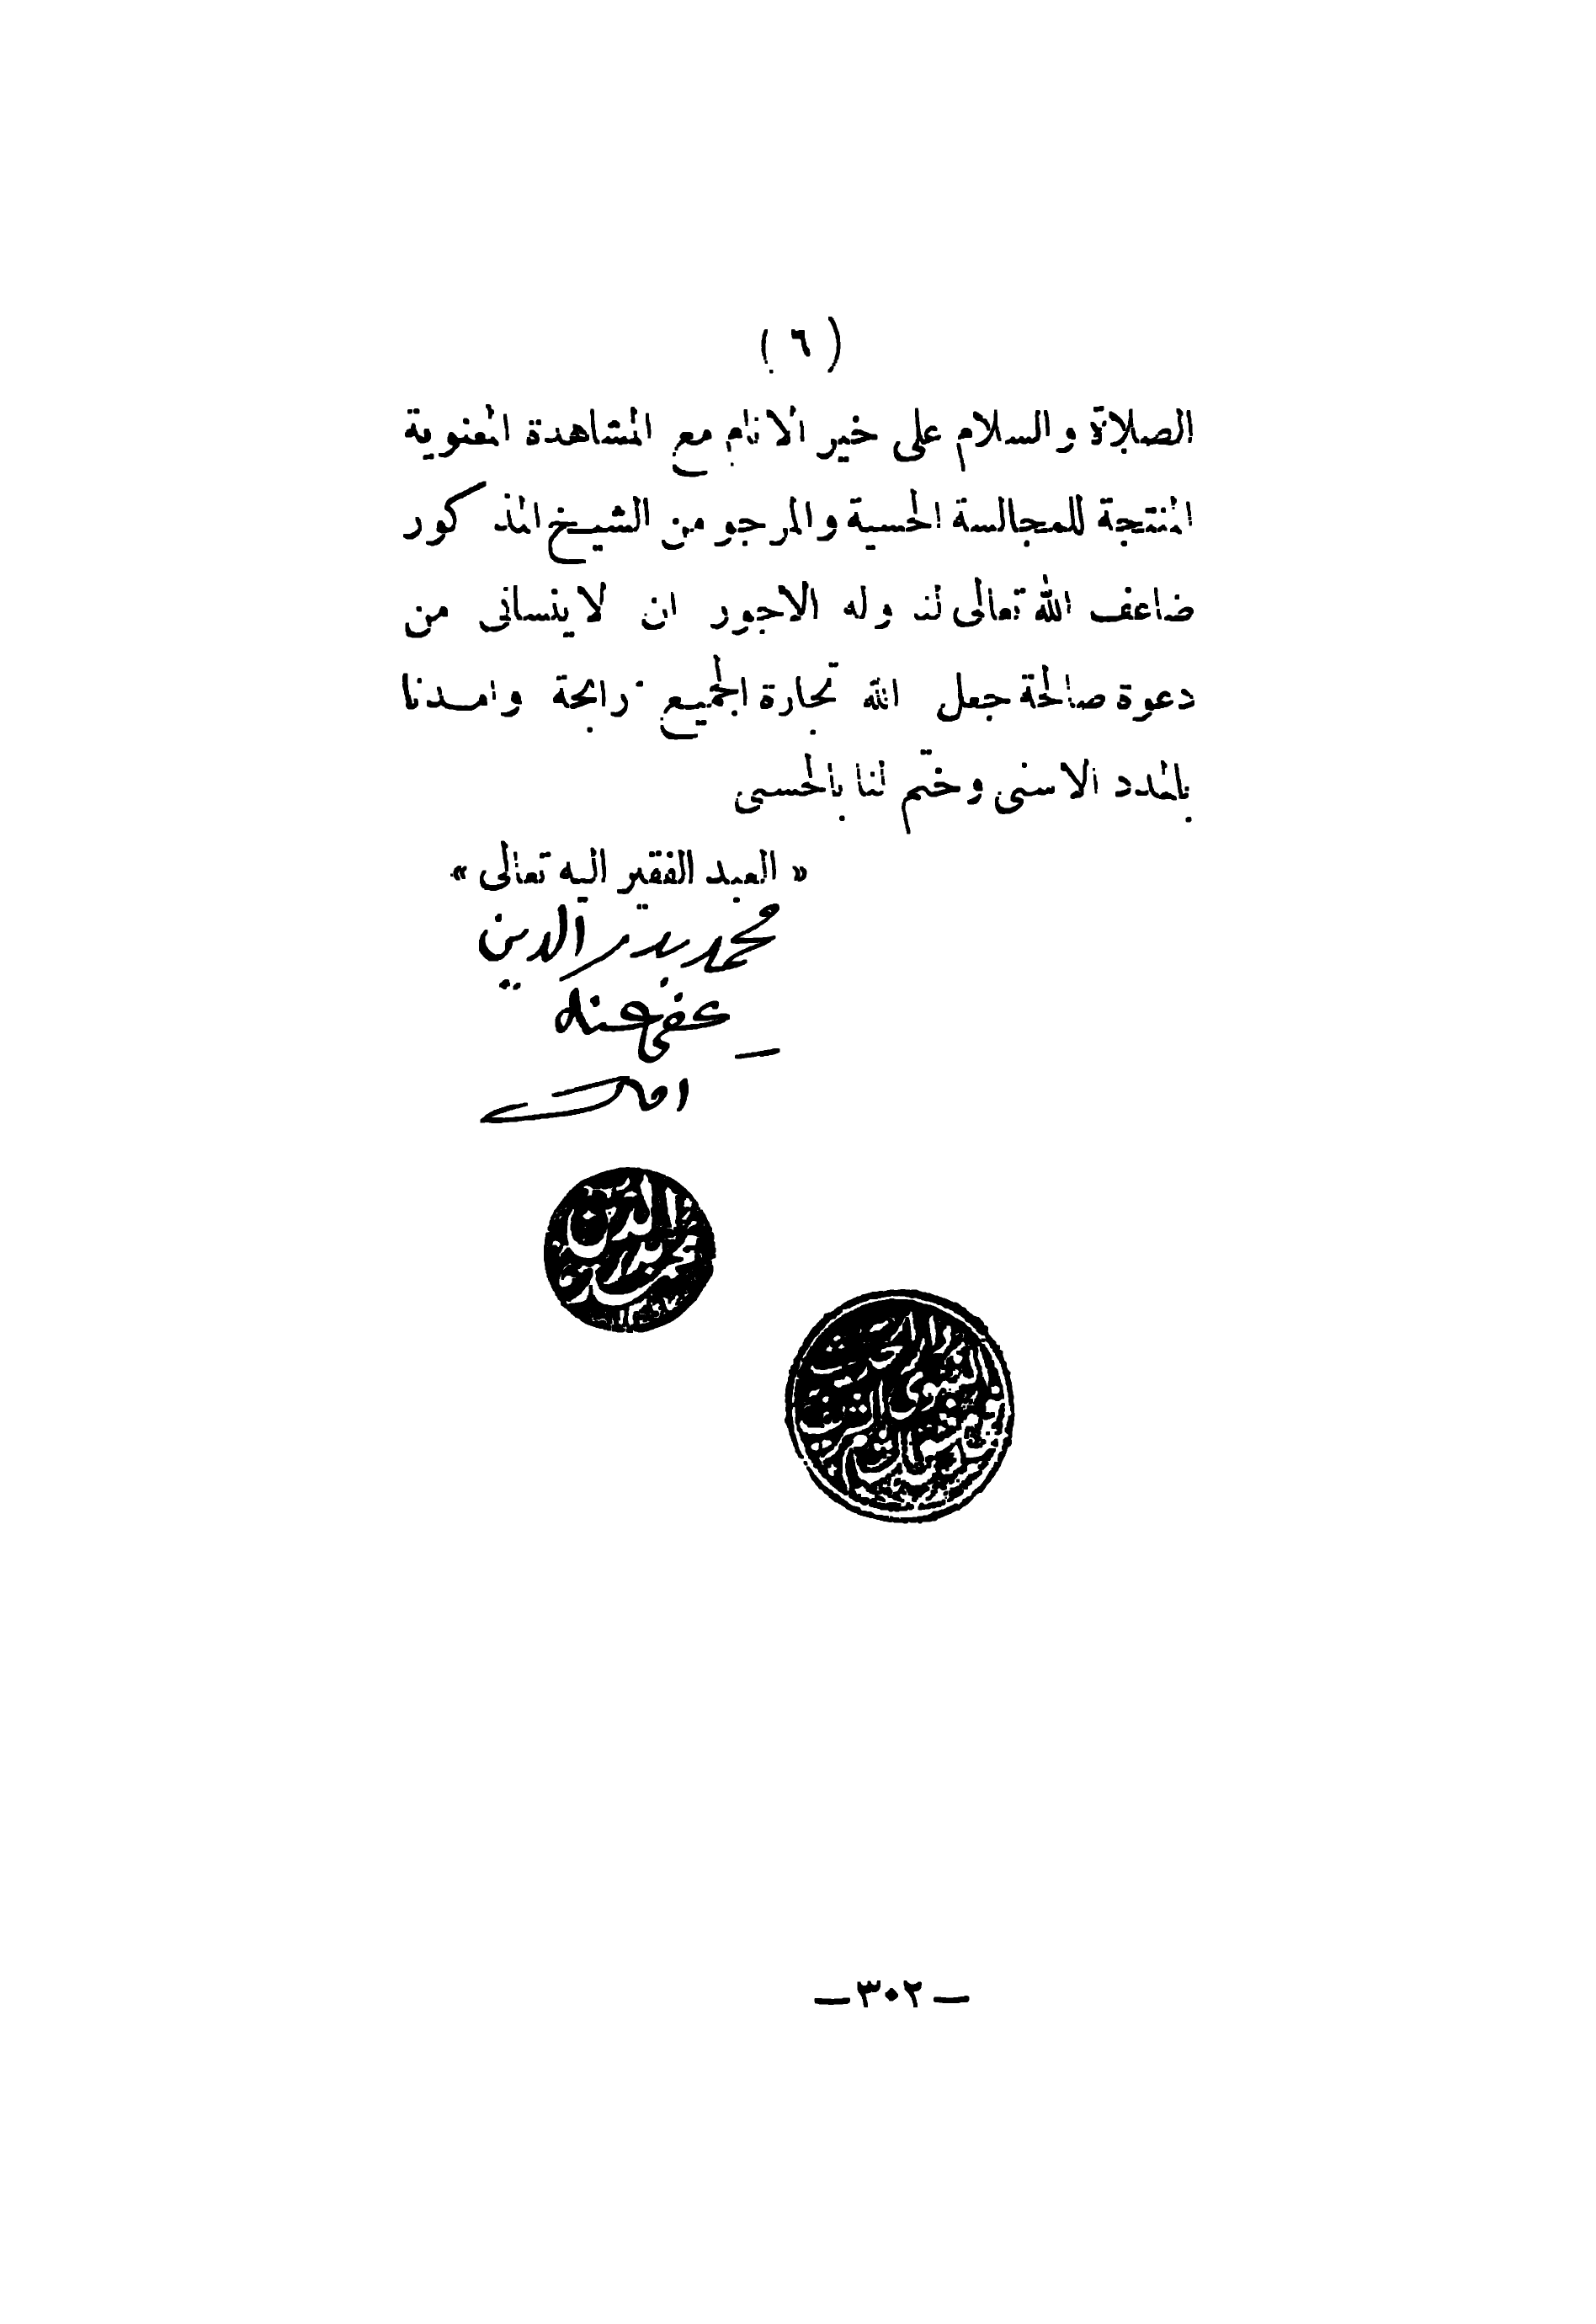 ( ٦ )
الصلاة والسلام على خير الانام مع المشاهدة المعنوية
المنتجة للمجالسة الحسية والمرجو من الشيخ المذكور
ضاعف الله تعالى لنا وله الاجور ان لا ينسانى من
دعوة صالحة جعل الله تجارة الجميع رابحة وامدنا
بالمدد الاسنى وختم لنا بالحسنى
« العبد الفقير اليه تعالى »
محمد بدر الدين
عفي عنه
محمد بدر الدين
— ٣٠٢ —